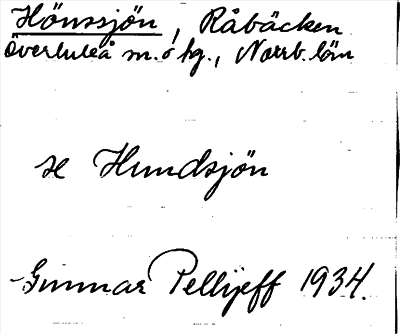 Hönssjön, Råbäcken
Överluleå sn. o hg., Norrb. län
se Hundsjön
Gunnar Pellijeff 1934.